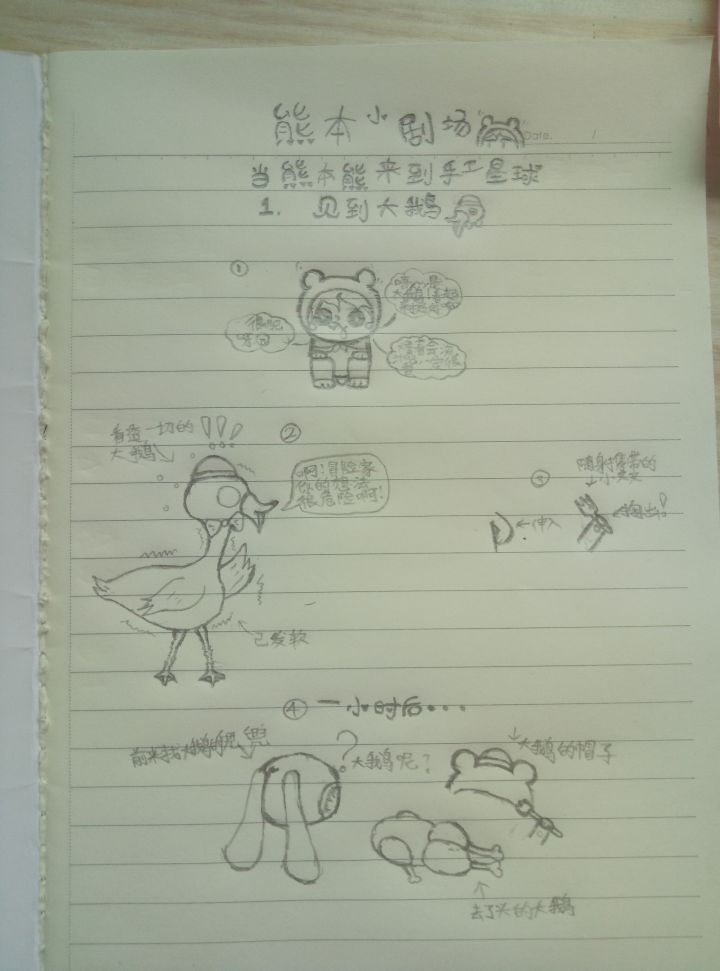 熊本小剧场
Date.
当熊本熊来到手工星球
1. 见到大鹅
①
很肥
呀
②
看透一切的
大鹅
!!!
啊!冒险家
你的想法
很危险啊!
已发软
③
随射携带的
小叉叉
←伸入
掏出!
④ 一小时后...
前来找大鹅的 兜兜
?
大鹅呢?
大鹅的帽子
去了头的大鹅